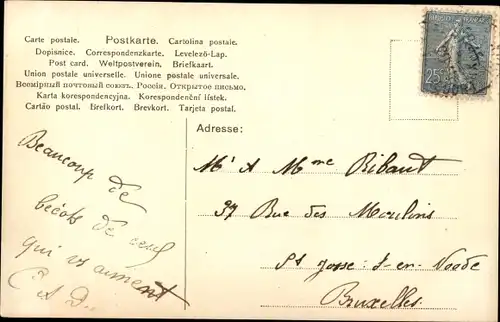 Carte postale. Postkarte. Cartolina postale.
Dopisnice. Correspondenzkarte. Levelező-Lap.
Post card. Weltpostverein. Briefkaart.
Union postale universelle. Unione postale universale.
Всемірный почтовый союзъ. Россія. Открытое письмо.
Karta korespondencyjna. Korespondenční lístek.
Cartão postal. Brefkort. Brevkort. Tarjeta postal.
Adresse:
Beaucoup de
bécots de ceux
qui vs aiment
Mr & Mme Ribaut
37 Rue des Moulins
St Josse-t-en-Noode
Bruxelles.
25